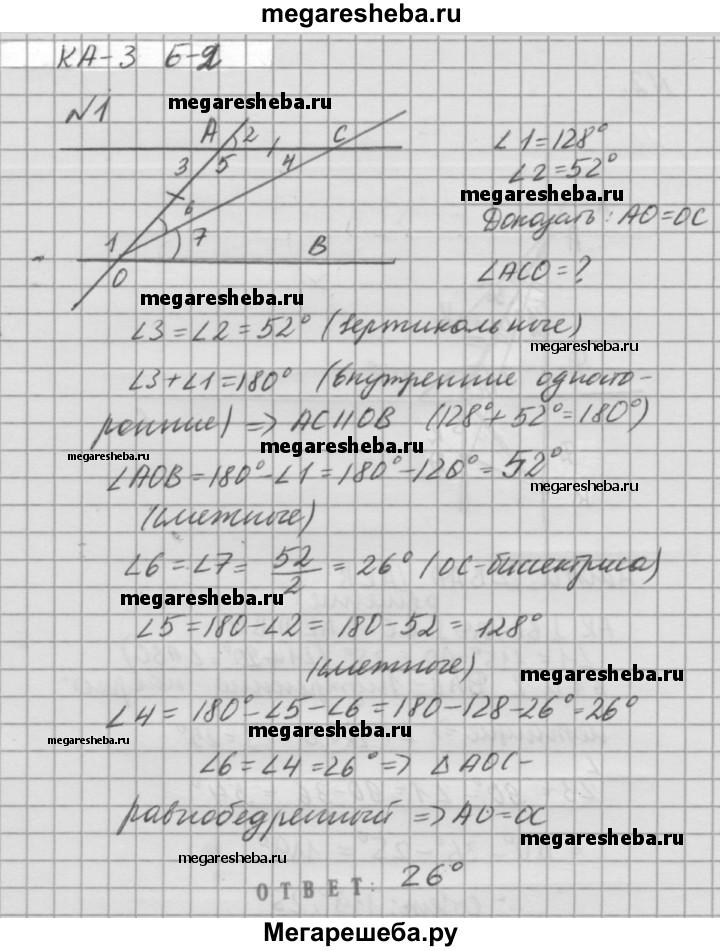 megaresheba.ru
КА-3 Б-2
№1
megaresheba.ru
A 2 C
3 5 4
6
1 7 B
O
∠1=128°
∠2=52°
megaresheba.ru
Доказать: AO=OC
∠ACO=?
megaresheba.ru
∠3=∠2=52° (вертикальные)
megaresheba.ru
∠3+∠1=180° (внутренние односто-
ронние) => AC||OB (128°+52°=180°)
megaresheba.ru
megaresheba.ru
∠AOB=180°-∠1=180°-120°=52°
megaresheba.ru
(смежные)
∠6=∠7= 52/2 = 26° (OC-биссектриса)
megaresheba.ru
∠5=180-∠2=180-52=128°
(смежные)
megaresheba.ru
∠4=180°-∠5-∠6=180-128-26°=26°
megaresheba.ru
megaresheba.ru
∠6=∠4=26° => △AOC-
равнобедренный => AO=OC
megaresheba.ru
megaresheba.ru
ОТВЕТ: 26°
Мегарешеба.ру